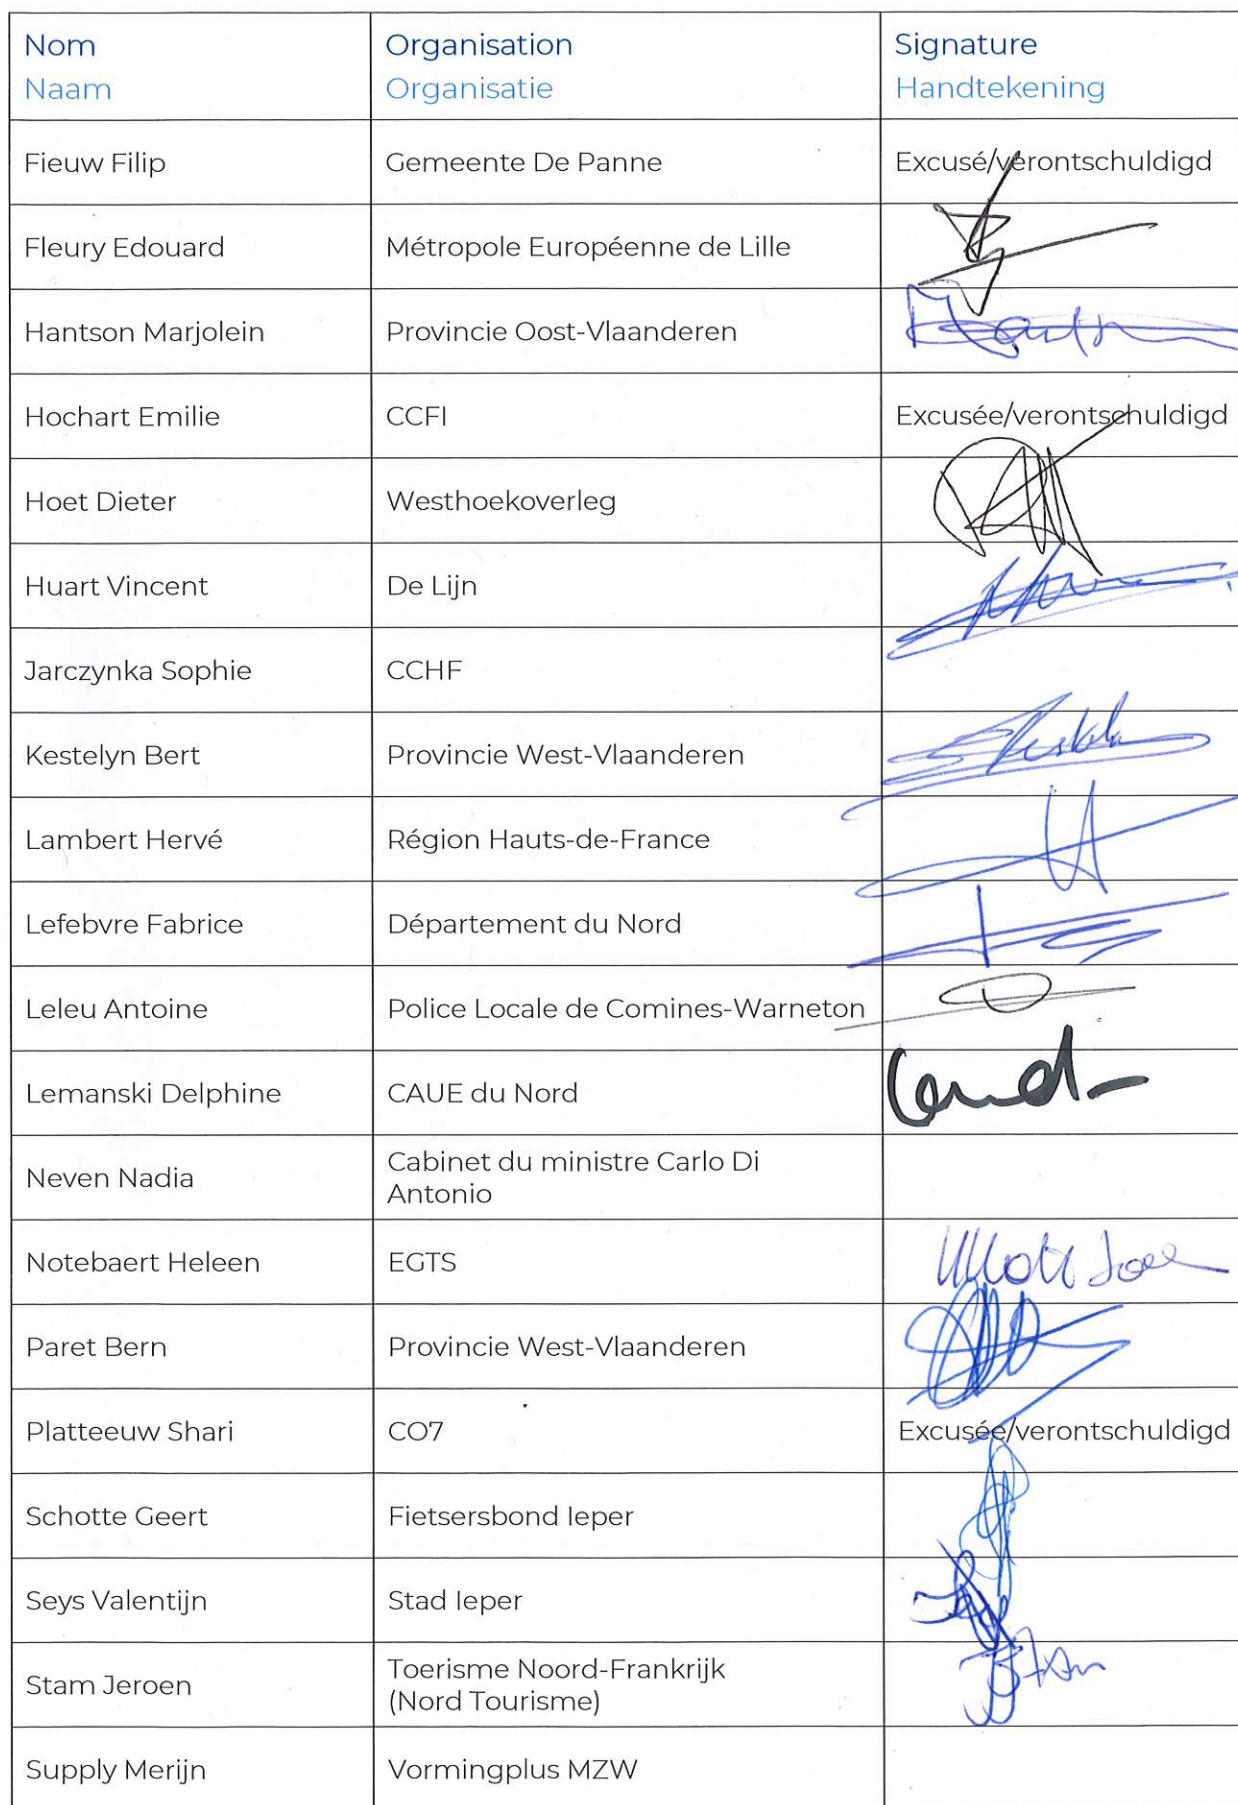 Nom Organisation Signature
Naam Organisatie Handtekening
Fieuw Filip Gemeente De Panne Excusé/verontschuldigd
Fleury Edouard Métropole Européenne de Lille
Hantson Marjolein Provincie Oost-Vlaanderen
Hochart Emilie CCFI Excusée/verontschuldigd
Hoet Dieter Westhoekoverleg
Huart Vincent De Lijn
Jarczynka Sophie CCHF
Kestelyn Bert Provincie West-Vlaanderen
Lambert Hervé Région Hauts-de-France
Lefebvre Fabrice Département du Nord
Leleu Antoine Police Locale de Comines-Warneton
Lemanski Delphine CAUE du Nord
Neven Nadia Cabinet du ministre Carlo Di
Antonio
Notebaert Heleen EGTS
Paret Bern Provincie West-Vlaanderen
Platteeuw Shari CO7 Excusée/verontschuldigd
Schotte Geert Fietsersbond Ieper
Seys Valentijn Stad Ieper
Stam Jeroen Toerisme Noord-Frankrijk
(Nord Tourisme)
Supply Merijn Vormingplus MZW